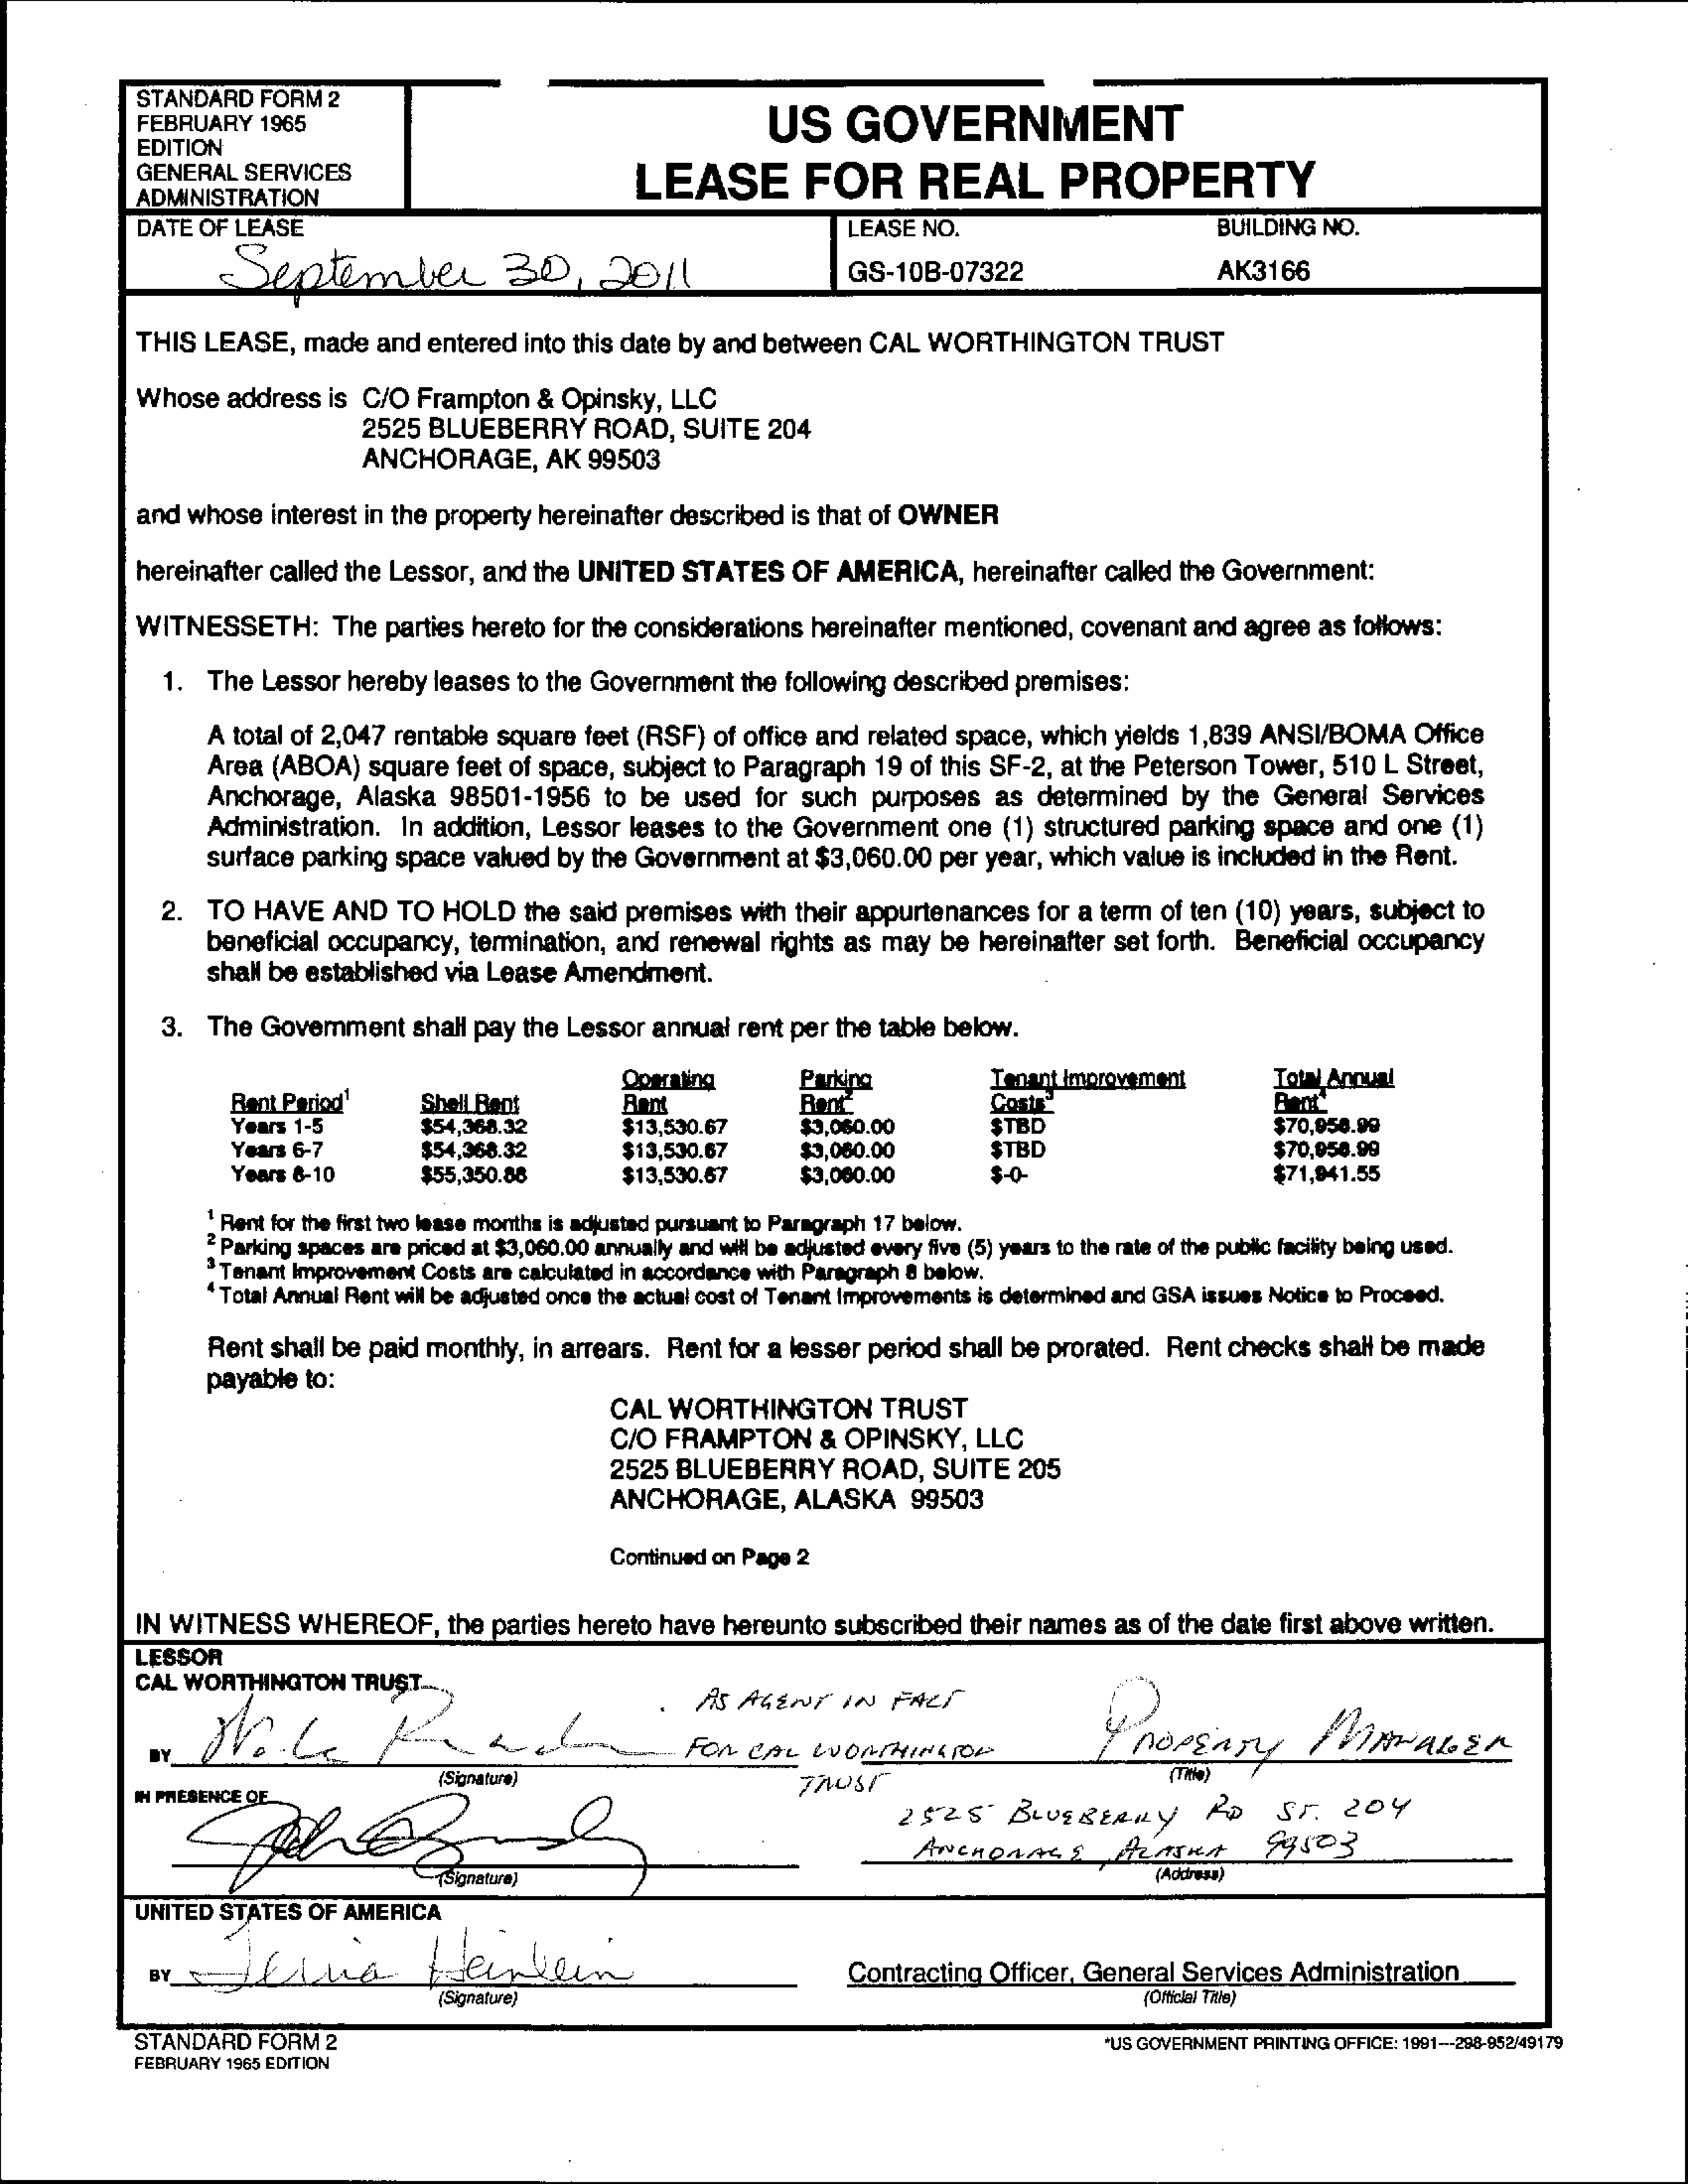 STANDARD FORM 2
FEBRUARY 1965
EDITION
GENERAL SERVICES
ADMINISTRATION
US GOVERNMENT
LEASE FOR REAL PROPERTY
DATE OF LEASE
September 30, 2011
LEASE NO.
GS-10B-07322
BUILDING NO.
AK3166
THIS LEASE, made and entered into this date by and between CAL WORTHINGTON TRUST
Whose address is C/O Frampton & Opinsky, LLC
2525 BLUEBERRY ROAD, SUITE 204
ANCHORAGE, AK 99503
and whose interest in the property hereinafter described is that of OWNER
hereinafter called the Lessor, and the UNITED STATES OF AMERICA, hereinafter called the Government:
WITNESSETH: The parties hereto for the considerations hereinafter mentioned, covenant and agree as follows:
1. The Lessor hereby leases to the Government the following described premises:
A total of 2,047 rentable square feet (RSF) of office and related space, which yields 1,839 ANSI/BOMA Office
Area (ABOA) square feet of space, subject to Paragraph 19 of this SF-2, at the Peterson Tower, 510 L Street,
Anchorage, Alaska 98501-1956 to be used for such purposes as determined by the General Services
Administration. In addition, Lessor leases to the Government one (1) structured parking space and one (1)
surface parking space valued by the Government at $3,060.00 per year, which value is included in the Rent.
2. TO HAVE AND TO HOLD the said premises with their appurtenances for a term of ten (10) years, subject to
beneficial occupancy, termination, and renewal rights as may be hereinafter set forth. Beneficial occupancy
shall be established via Lease Amendment.
3. The Government shall pay the Lessor annual rent per the table below.
Operating Parking Tenant Improvement Total Annual
Rent Period¹ Shell Rent Rent Rent² Costs³ Rent⁴
Years 1-5 $54,368.32 $13,530.67 $3,060.00 $TBD $70,958.99
Years 6-7 $54,368.32 $13,530.67 $3,060.00 $TBD $70,958.99
Years 8-10 $55,350.88 $13,530.67 $3,060.00 $-0- $71,941.55
¹ Rent for the first two lease months is adjusted pursuant to Paragraph 17 below.
² Parking spaces are priced at $3,060.00 annually and will be adjusted every five (5) years to the rate of the public facility being used.
³ Tenant Improvement Costs are calculated in accordance with Paragraph 8 below.
⁴ Total Annual Rent will be adjusted once the actual cost of Tenant Improvements is determined and GSA issues Notice to Proceed.
Rent shall be paid monthly, in arrears. Rent for a lesser period shall be prorated. Rent checks shall be made
payable to:
CAL WORTHINGTON TRUST
C/O FRAMPTON & OPINSKY, LLC
2525 BLUEBERRY ROAD, SUITE 205
ANCHORAGE, ALASKA 99503
Continued on Page 2
IN WITNESS WHEREOF, the parties hereto have hereunto subscribed their names as of the date first above written.
LESSOR
CAL WORTHINGTON TRUST
AS AGENT IN FACT
BY FOR CAL WORTHINGTON PROPERTY MANAGER
(Signature) TRUST (Title)
IN PRESENCE OF
2525 BLUEBERRY RD ST. 204
ANCHORAGE, ALASKA 99503
(Signature) (Address)
UNITED STATES OF AMERICA
BY Heinlein Contracting Officer, General Services Administration
(Signature) (Official Title)
STANDARD FORM 2
FEBRUARY 1965 EDITION
*US GOVERNMENT PRINTING OFFICE: 1991---298-952/49179